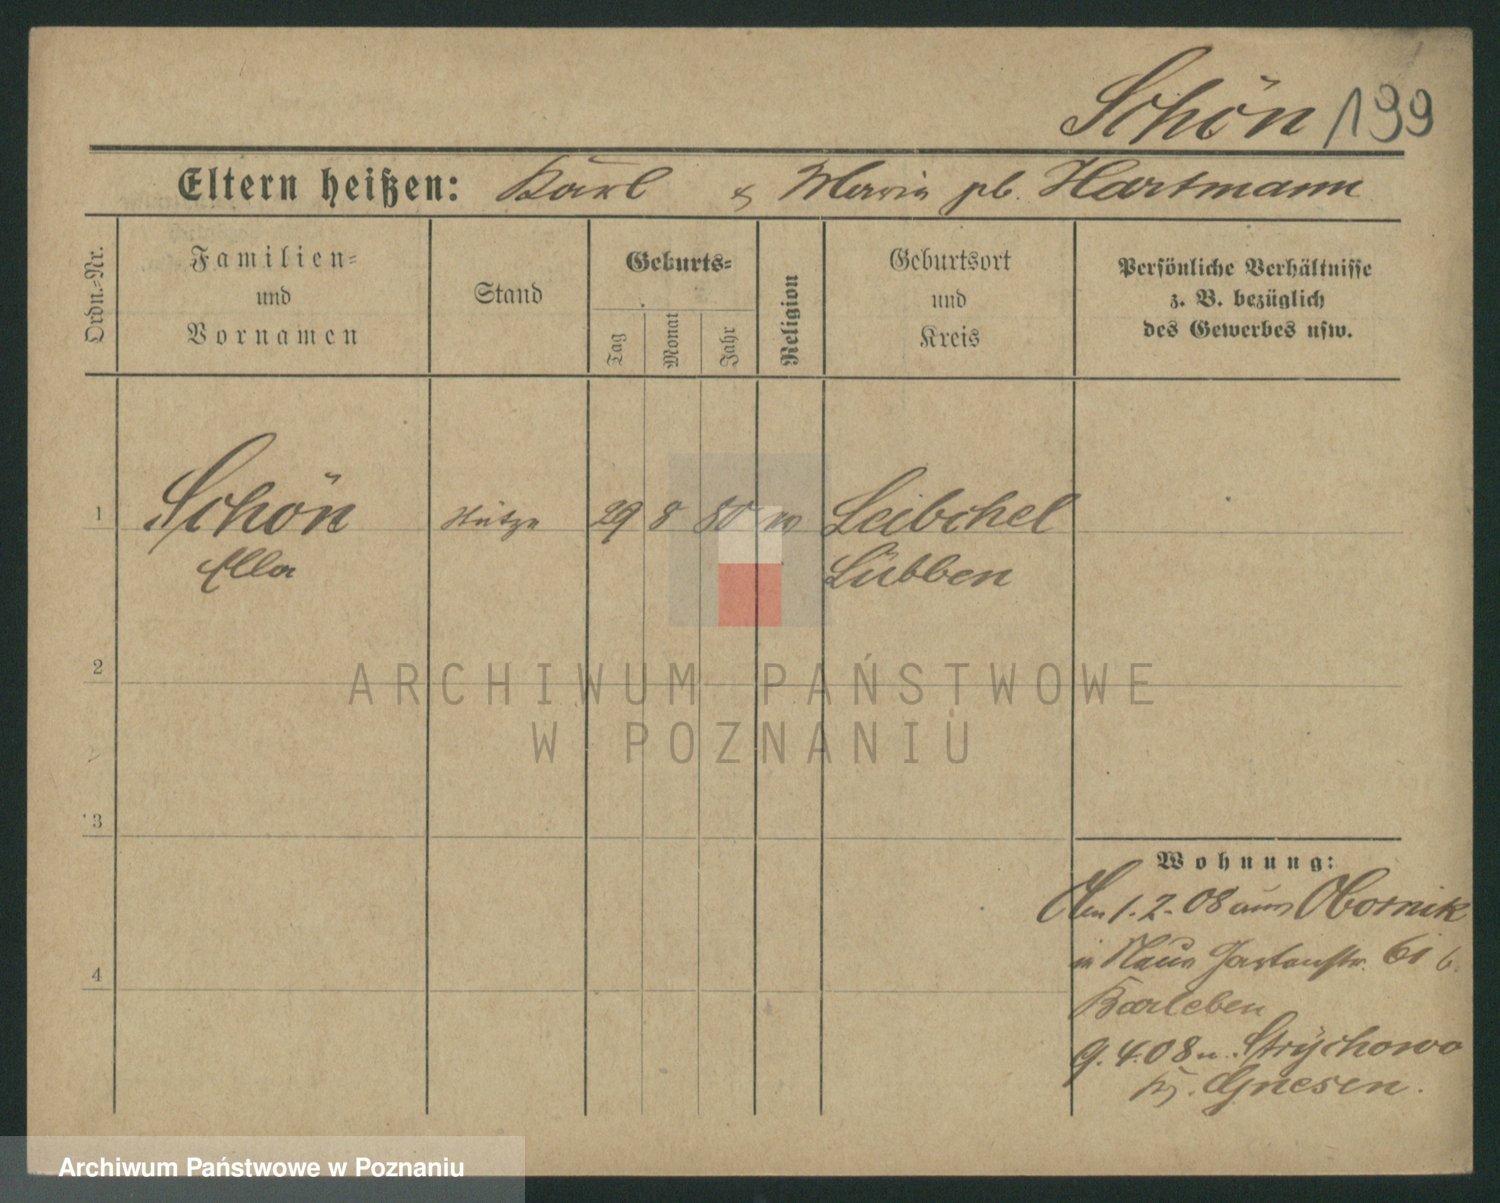 Schön 199
Eltern heißen: Karl & Maria gb. Hartmann
Ordn.-Nr.
Familien-
und
Vornamen
Stand
Geburts-
Tag
Monat
Jahr
Religion
Geburtsort
und
Kreis
Persönliche Verhältnisse
z. B. bezüglich
des Gewerbes usw.
1 Schön Stütze 29 8 80 Leibchel
Ella Lübben
2
3
4
Wohnung:
1.2.08 aus Obornik
Gartenstr. 61 b.
Karleben
9.4.08 n. Strychowo
Kr. Gnesen.
ARCHIWUM PAŃSTWOWE
W POZNANIU
Archiwum Państwowe w Poznaniu